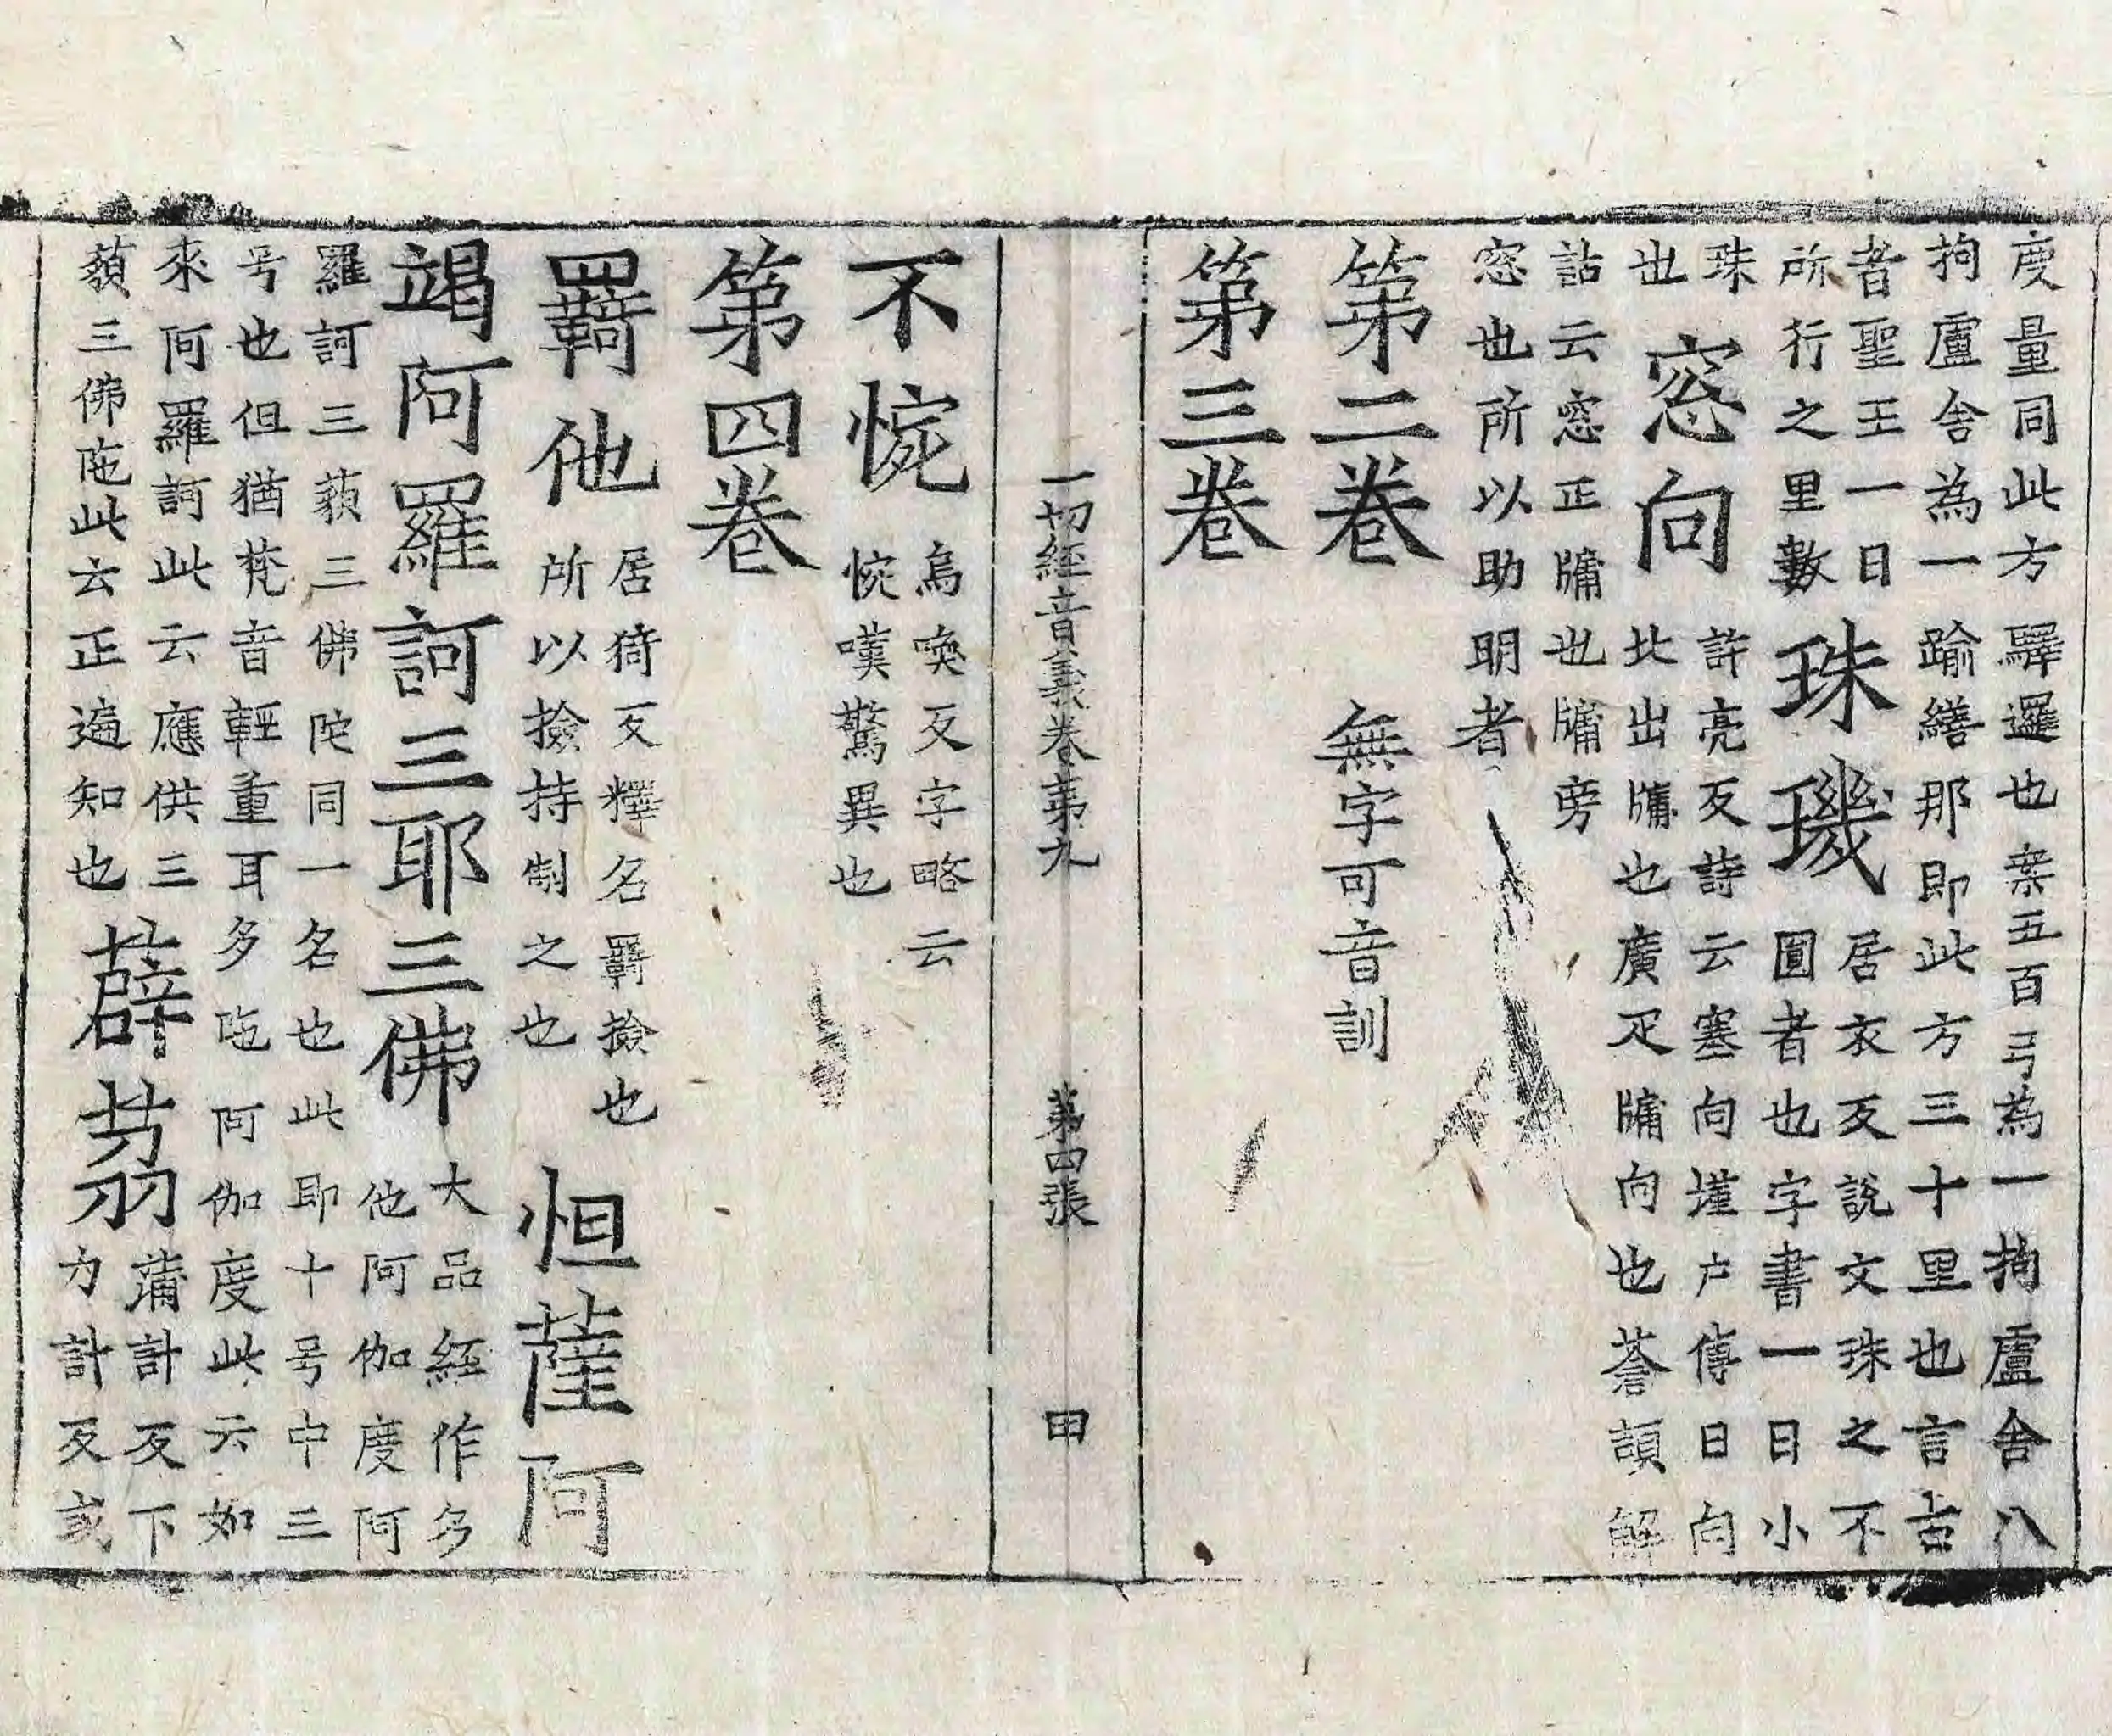 度量同此方驛邏也案五百弓為一拘盧舍八
拘盧舍為一踰繕那即此方三十里也言古
者聖王一日
所行之里數
珠璣
居衣反說文珠之不
圓者也字書一曰小
珠
也
窓向
許亮反詩云塞向墐户傳曰向
北出牖也廣疋牖向也蒼頡解
詁云窓正牖也牖旁
窓也所以助明者
第二卷 無字可音訓
第三卷
一切經音義卷第九 第四張 田
不惋
烏喚反字略云
惋嘆驚異也
第四卷
羈他
居猗反釋名羈撿也
所以撿持制之也
怛薩阿
竭阿羅訶三耶三佛
大品經作多
他阿伽度阿
羅訶三藐三佛陀同一名也此即十号中三
号也但猶梵音輕重耳多陁阿伽度此云如
來阿羅訶此云應供三
藐三佛陁此云正遍知也
薜茘
蒲計反下
力計反或